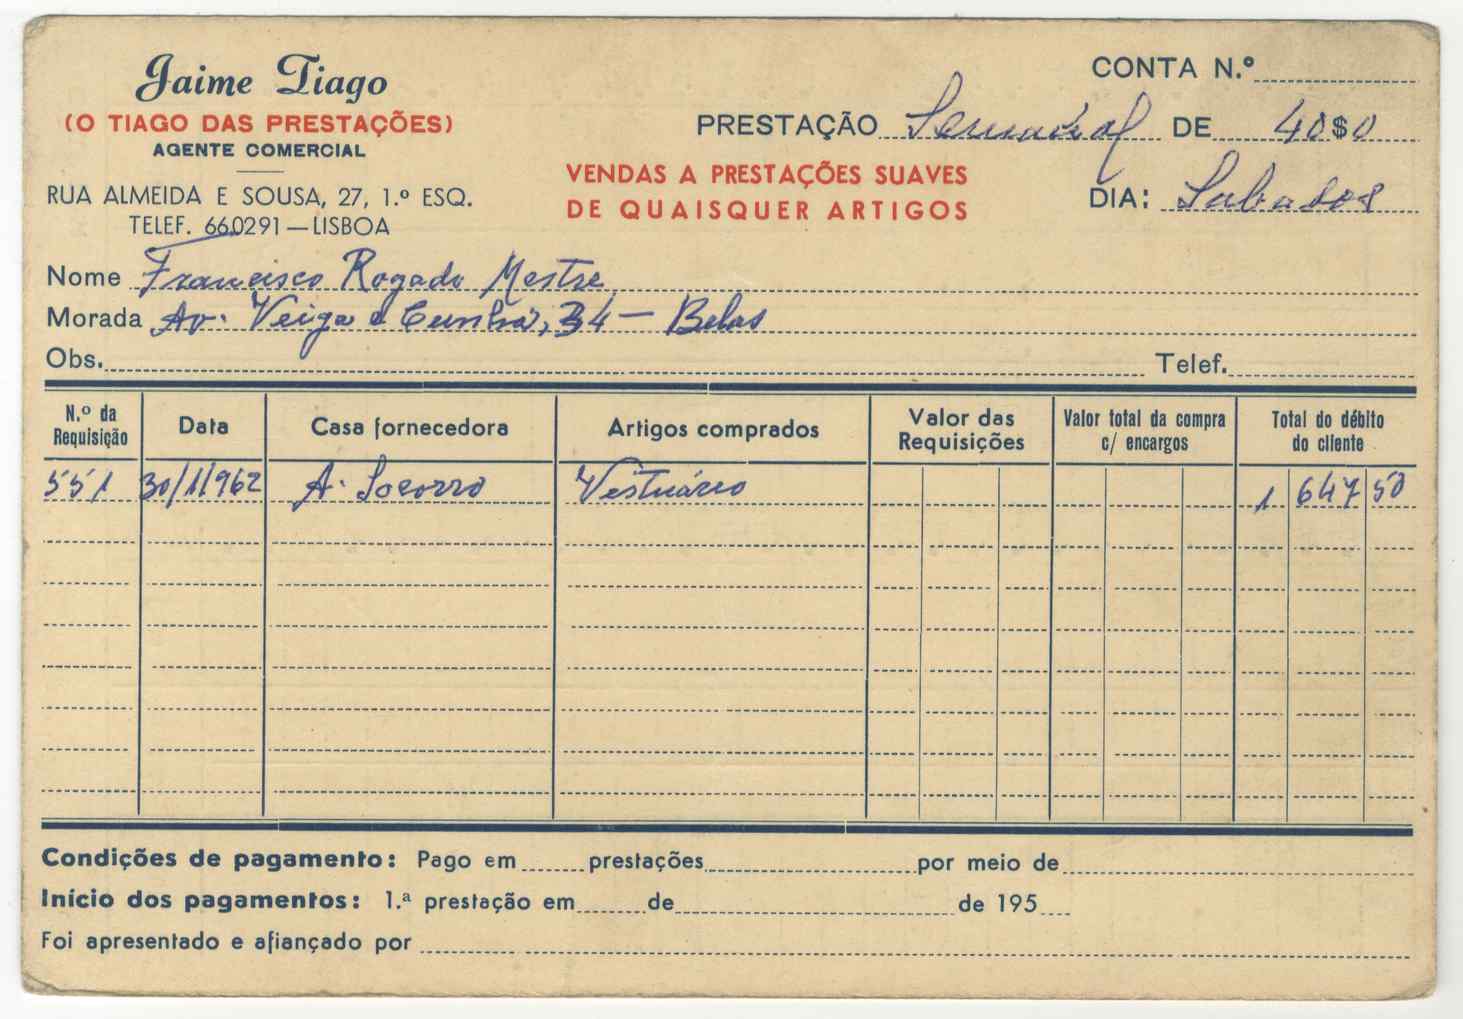 Jaime Tiago
(O TIAGO DAS PRESTAÇÕES)
AGENTE COMERCIAL
RUA ALMEIDA E SOUSA, 27, 1.º ESQ.
TELEF. 660291 — LISBOA
VENDAS A PRESTAÇÕES SUAVES
DE QUAISQUER ARTIGOS
CONTA N.º
PRESTAÇÃO Semanal DE 40$0
DIA: Sabados
Nome Francisco Rogado Mestre
Morada Av. Veiga e Cunha, 34 — Belas
Obs. Telef.
N.º da Requisição Data Casa fornecedora Artigos comprados Valor das Requisições Valor total da compra c/ encargos Total do débito do cliente
551 30/1/1962 A. Socorro Vestuário 1 647 50
Condições de pagamento: Pago em prestações por meio de
Início dos pagamentos: 1.ª prestação em de de 195
Foi apresentado e afiançado por